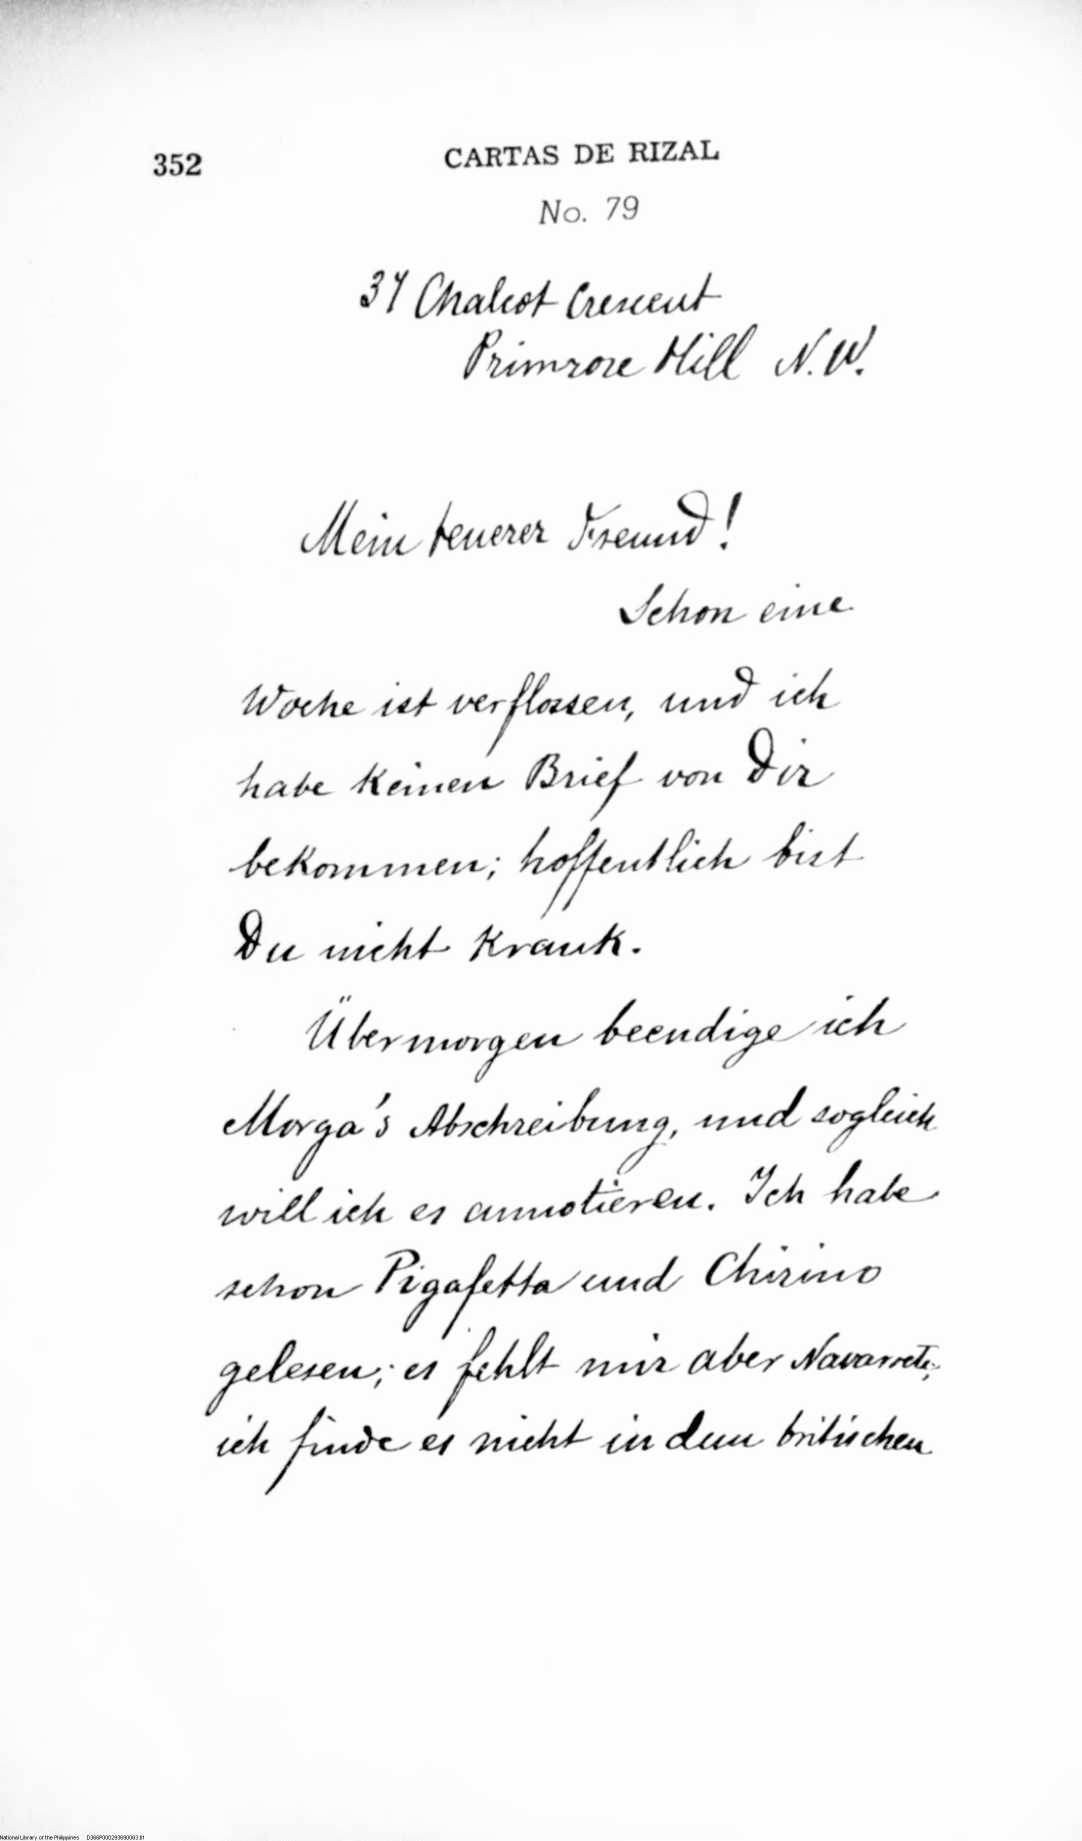 352
CARTAS DE RIZAL
No. 79
37 Chalcot Crescent
Primrose Hill N. W.
Mein teuerer Freund!
Schon eine
Woche ist verflossen, und ich
habe keinen Brief von Dir
bekommen; hoffentlich bist
Du nicht krank.
Übermorgen beendige ich
Morga's Abschreibung, und sogleich
will ich es annotieren. Ich habe
schon Pigafetta und Chirino
gelesen; es fehlt mir aber Navarrete;
ich finde es nicht in dem britischen
National Library of the Philippines